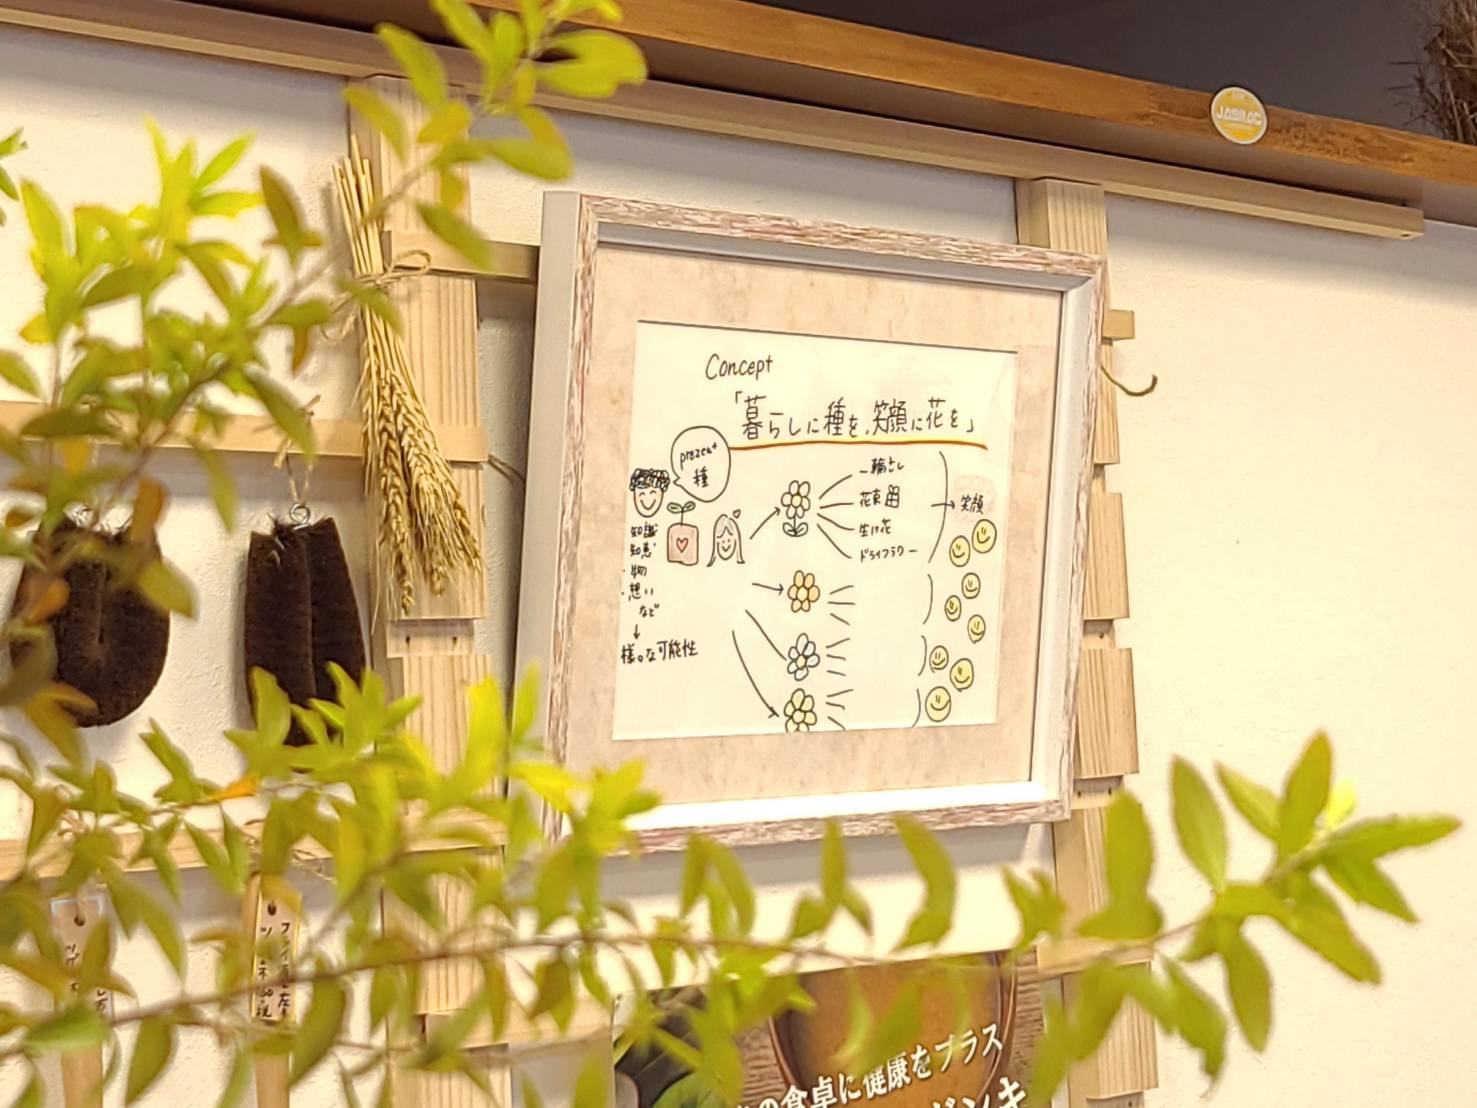 JASRAC
Concept
「暮らしに種を、笑顔に花を」
present
種
知識
知恵
・物
・想い
など
↓
様々な可能性
一輪ざし
花束
生け花
ドライフラワー
笑顔
の食卓に健康をプラス